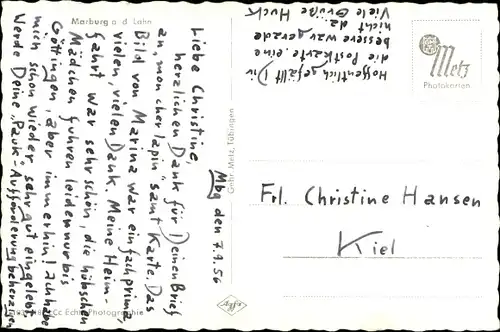 Marburg a. d. Lahn
Mbg den 7.9.56
Liebe Christine,
herzlichen Dank für Deinen Brief
an „mon cher lapin" samt Karte. Das
Bild von Marina war einfach prima,
vielen, vielen Dank. Meine Heim-
fahrt war sehr schön, die hübschen
Mädchen fuhren leider nur bis
Göttingen, aber immerhin! Ich habe
mich schon wieder sehr gut eingelebt
Werde Deine „Pauk"-Aufforderung beherzigen
Hoffentlich gefällt Dir
die Postkarte, eine
bessere war gerade
nicht da.
Viele Grüße Huck
Metz
Photokarten
Gebr. Metz, Tübingen
Frl. Christine Hansen
Kiel
Echte Photographie
Agfa